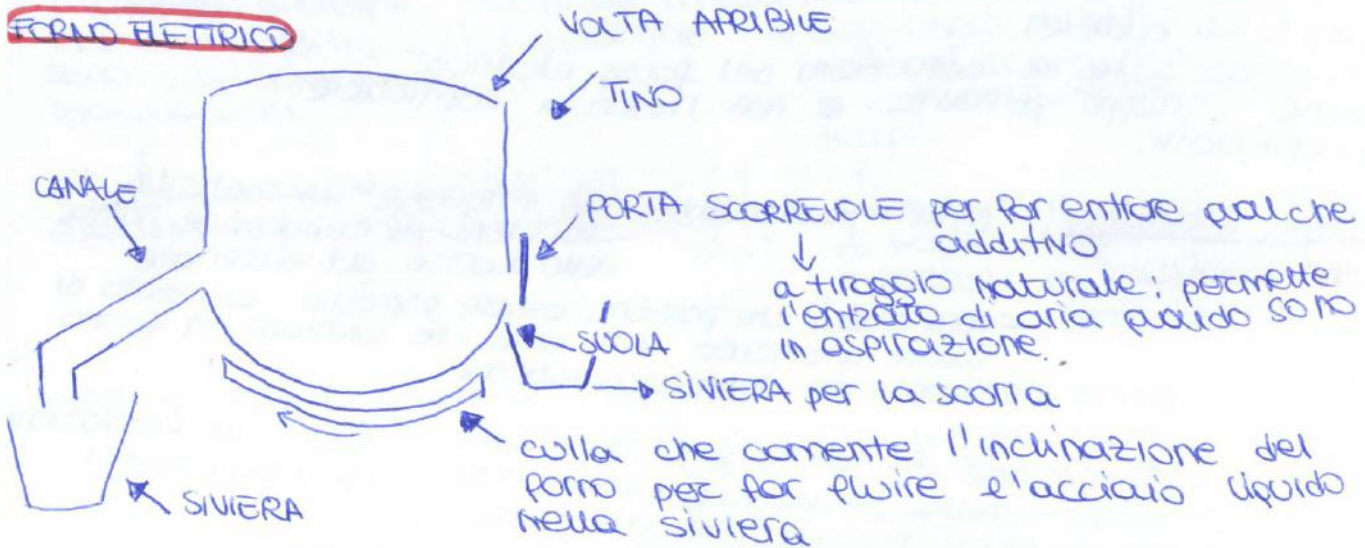 FORNO ELETTRICO
VOLTA APRIBILE
TINO
CANALE
PORTA SCORREVOLE per far entrare qualche
additivo
a tiraggio naturale: permette
l'entrata di aria quando sono
in aspirazione
SUOLA
SIVIERA per la scoria
culla che comente l'inclinazione del
forno per far fluire l'acciaio liquido
nella siviera
SIVIERA